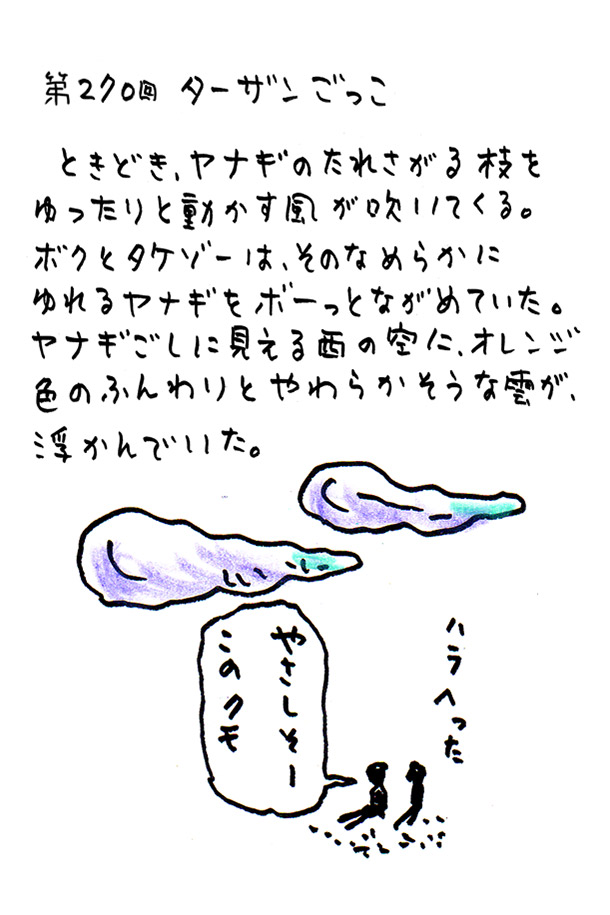 第270回 ターザンごっこ
ときどき、ヤナギのたれさがる枝を
ゆったりと動かす風が吹いてくる。
ボクとタケゾーは、そのなめらかに
ゆれるヤナギをボーっとながめていた。
ヤナギごしに見える西の空に、オレンジ
色のふんわりとやわらかそうな雲が、
浮かんでいた。
ハラへった
やさしそー
このクモ